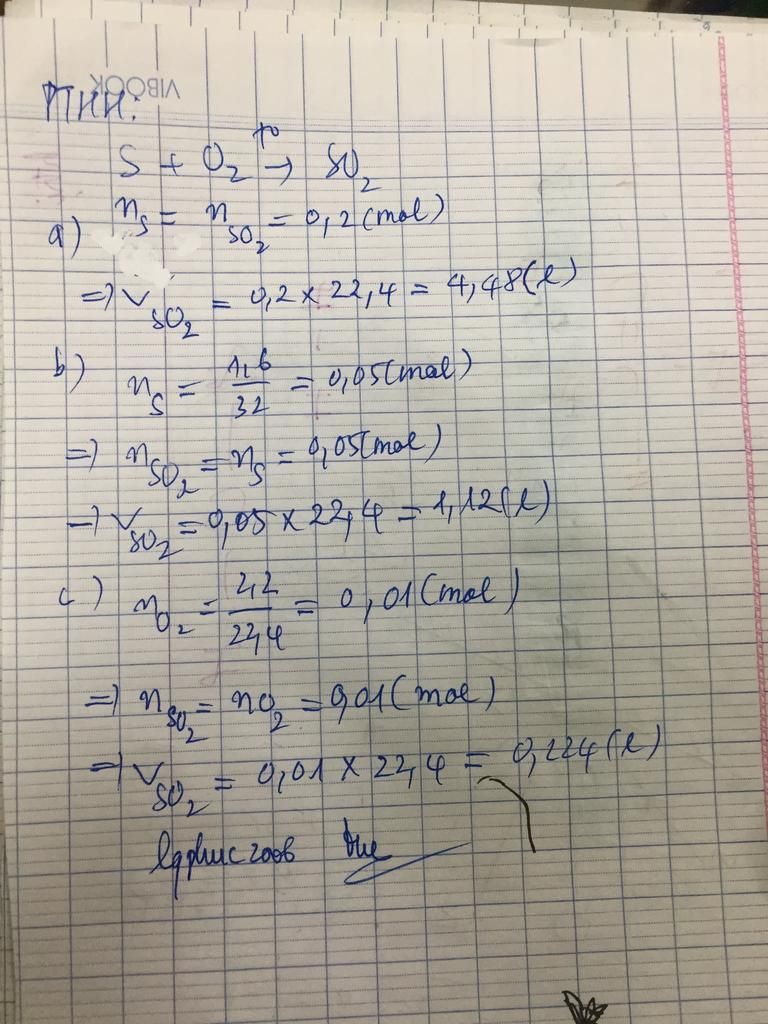 VIBOOK
PTHH:
S + O₂ →(t°) SO₂
a) nS = nSO₂ = 0,2 (mol)
=> VSO₂ = 0,2 × 22,4 = 4,48 (l)
b) nS = 1,6/32 = 0,05 (mol)
=> nSO₂ = nS = 0,05 (mol)
=> VSO₂ = 0,05 × 22,4 = 1,12 (l)
c) nO₂ = 2,2/22,4 = 0,01 (mol)
=> nSO₂ = nO₂ = 0,01 (mol)
=> VSO₂ = 0,01 × 22,4 = 0,224 (l)